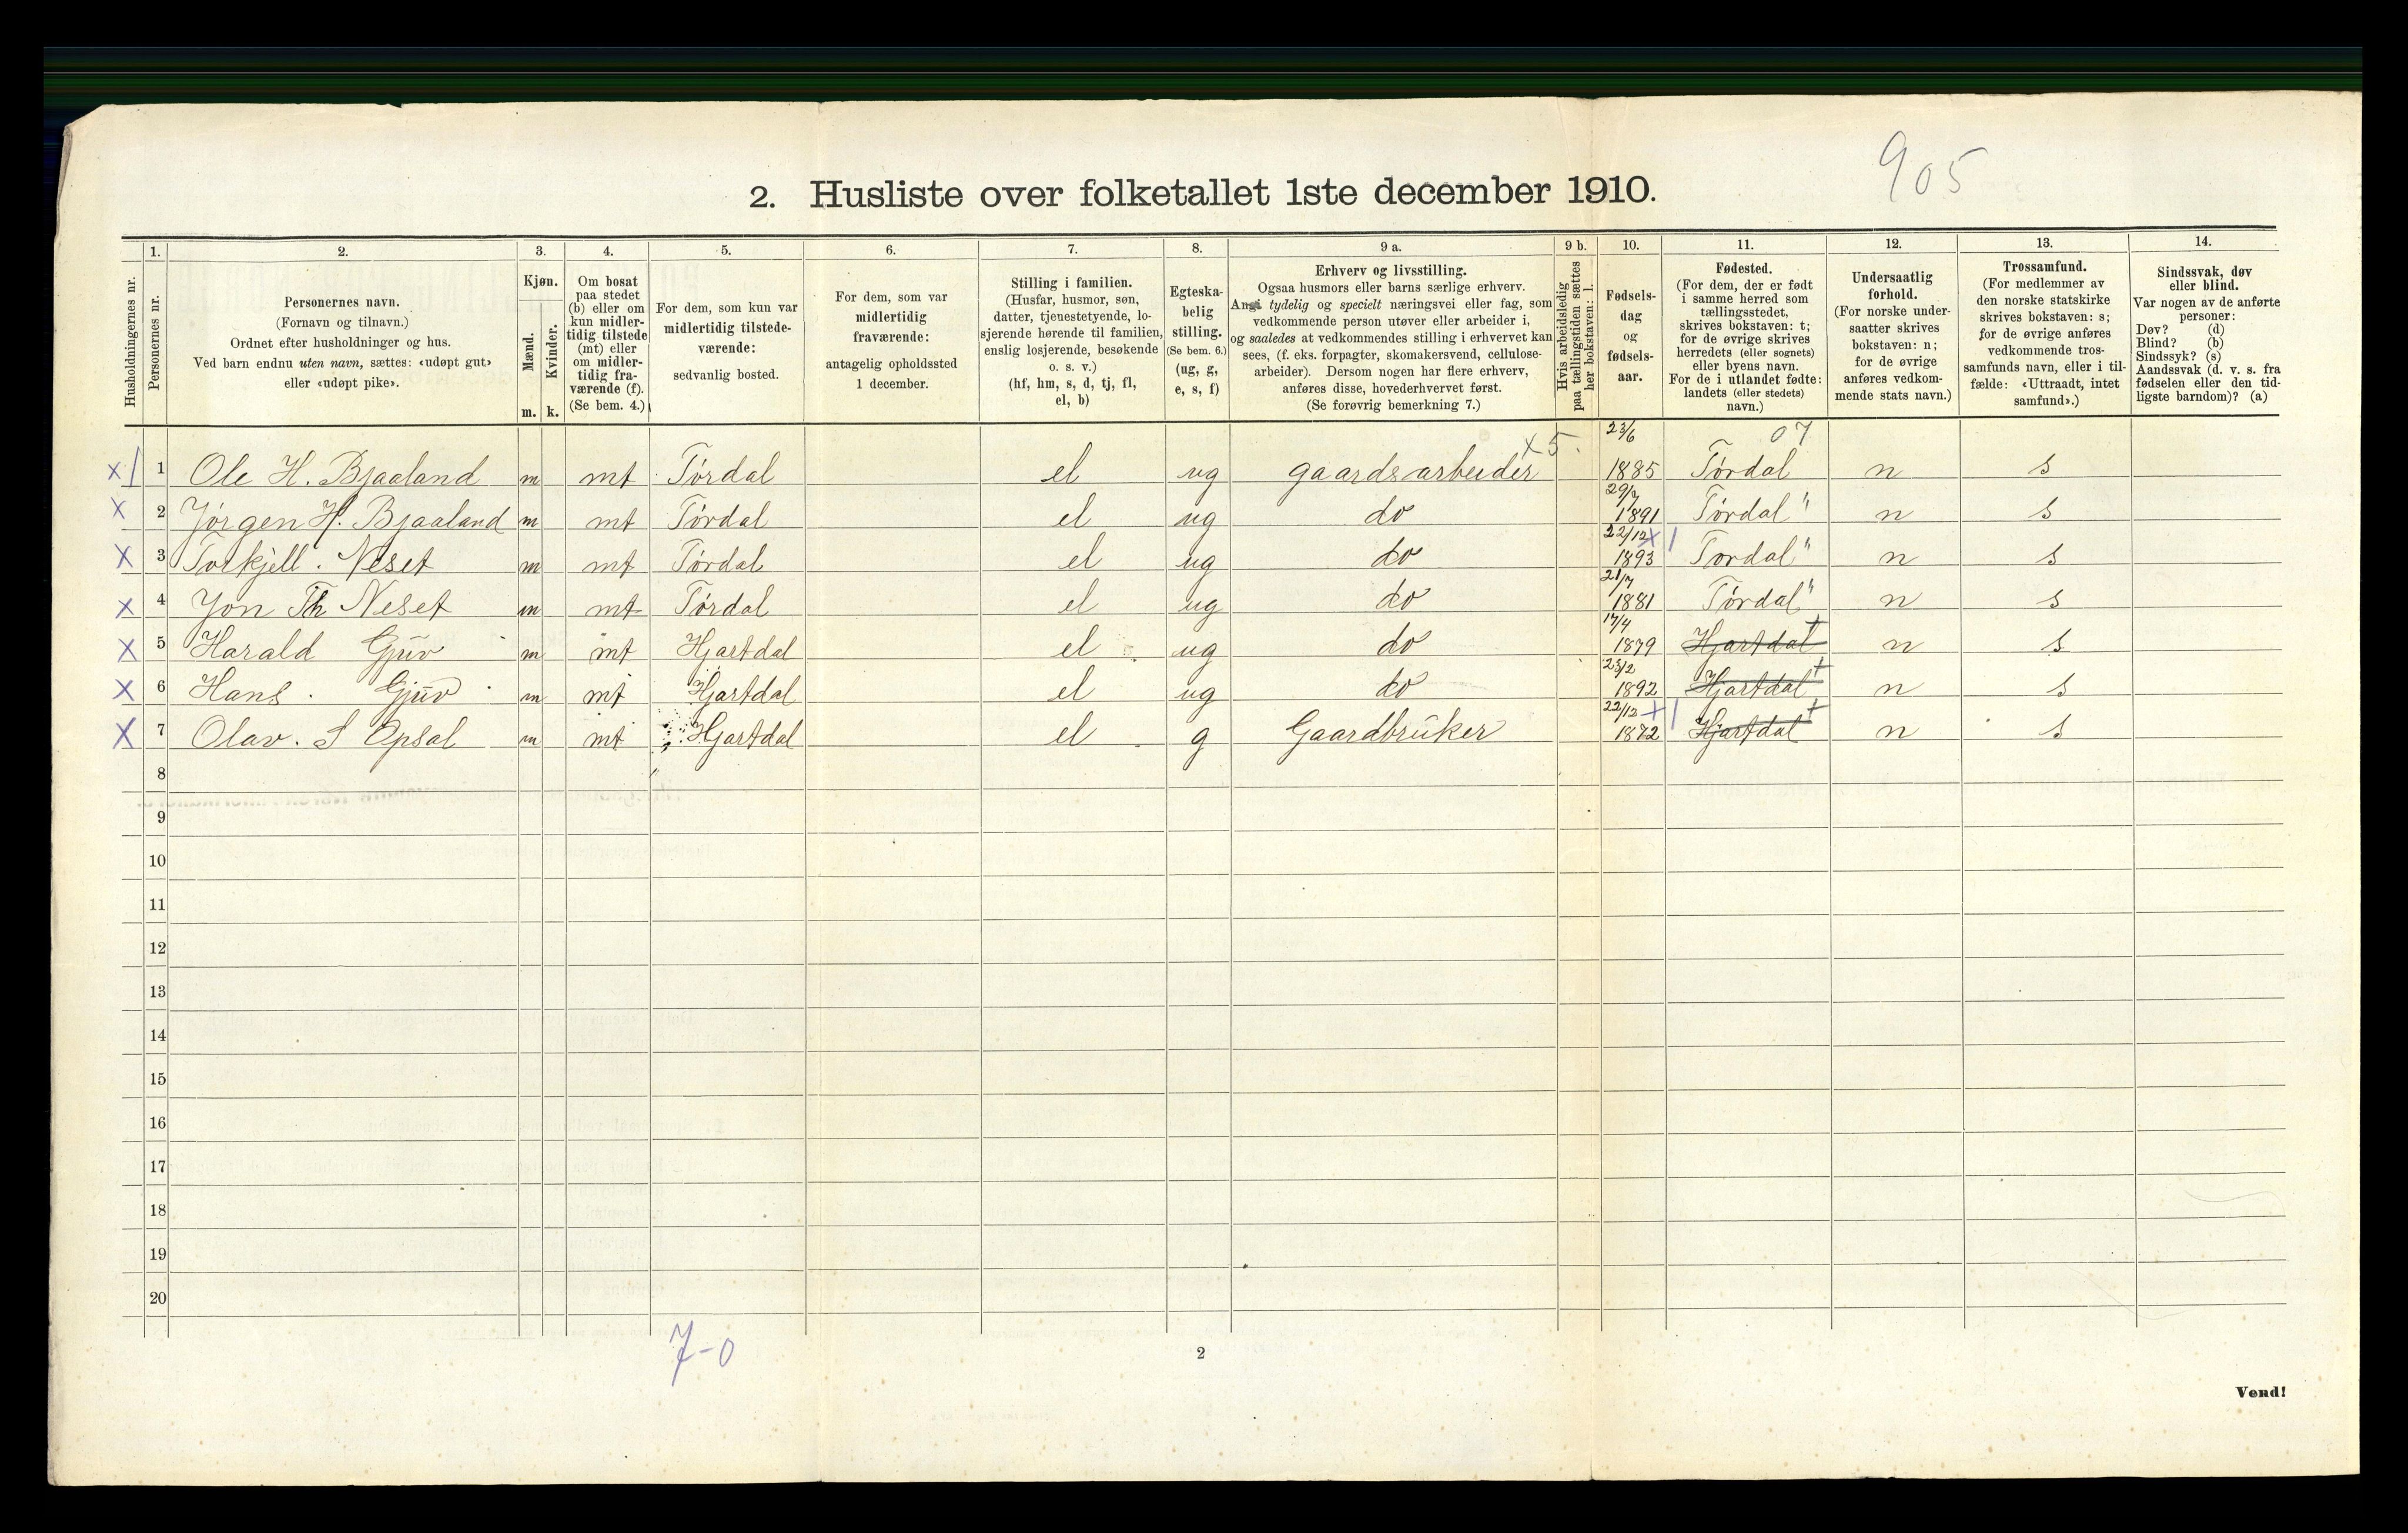 905
2. Husliste over folketallet 1ste december 1910.
Husholdningernes nr.
1. Personernes nr.
2. Personernes navn.
(Fornavn og tilnavn.)
Ordnet efter husholdninger og hus.
Ved barn endnu uten navn, sættes: «udøpt gut»
eller «udøpt pike».
3. Kjøn.
Mænd. Kvinder.
m. k.
4. Om bosat
paa stedet
(b) eller om
kun midler-
tidig tilstede
(mt) eller
om midler-
tidig fra-
værende (f).
(Se bem. 4.)
5. For dem, som kun var
midlertidig tilstede-
værende:
sedvanlig bosted.
6. For dem, som var
midlertidig
fraværende:
antagelig opholdssted
1 december.
7. Stilling i familien.
(Husfar, husmor, søn,
datter, tjenestetyende, lo-
sjerende hørende til familien,
enslig losjerende, besøkende
o. s. v.)
(hf, hm, s, d, tj, fl,
el, b)
8. Egteska-
belig
stilling.
(Se bem. 6.)
(ug, g,
e, s, f)
9 a. Erhverv og livsstilling.
Ogsaa husmors eller barns særlige erhverv.
Angi tydelig og specielt næringsvei eller fag, som
vedkommende person utøver eller arbeider i,
og saaledes at vedkommendes stilling i erhvervet kan
sees, (f. eks. forpagter, skomakersvend, cellulose-
arbeider). Dersom nogen har flere erhverv,
anføres disse, hovederhvervet først.
(Se forøvrig bemerkning 7.)
9 b. Hvis arbeidsledig
paa tællingstiden sættes
her bokstaven: l.
10. Fødsels-
dag
og
fødsels-
aar.
11. Fødested.
(For dem, der er født
i samme herred som
tællingsstedet,
skrives bokstaven: t;
for de øvrige skrives
herredets (eller sognets)
eller byens navn.
For de i utlandet fødte:
landets (eller stedets)
navn.)
12. Undersaatlig
forhold.
(For norske under-
saatter skrives
bokstaven: n;
for de øvrige
anføres vedkom-
mende stats navn.)
13. Trossamfund.
(For medlemmer av
den norske statskirke
skrives bokstaven: s;
for de øvrige anføres
vedkommende tros-
samfunds navn, eller i til-
fælde: «Uttraadt, intet
samfund».)
14. Sindssvak, døv
eller blind.
Var nogen av de anførte
personer:
Døv? (d)
Blind? (b)
Sindssyk? (s)
Aandssvak (d. v. s. fra
fødselen eller den tid-
ligste barndom)? (a)
x 5. 23/6 07
x 1 Ole H. Bjaaland m mt Tørdal el ug gaardsarbeider 1885 Tørdal n s
x 2 Jørgen H. Bjaaland m mt Tørdal el ug do 29/7 1891 Tørdal " n s
x 3 Torkjell. Neset m mt Tørdal el ug do 22/12 x 1893 Tørdal " n s
x 4 Jon Th Neset m mt Tørdal el ug do 21/7 1881 Tørdal " n s
x 5 Harald Gjuv m mt Hjartdal el ug do 17/4 1879 Hjartdal t n s
x 6 Hans. Gjuv m mt Hjartdal el ug do 23/2 1892 Hjartdal t n s
x 7 Olav. S Epsal m mt Hjartdal el g Gaardbruker 22/12 x 1872 Hjartdal t n s
8
9
10
11
12
13
14
15
16
17
18
19
20
7-0
2
Vend!